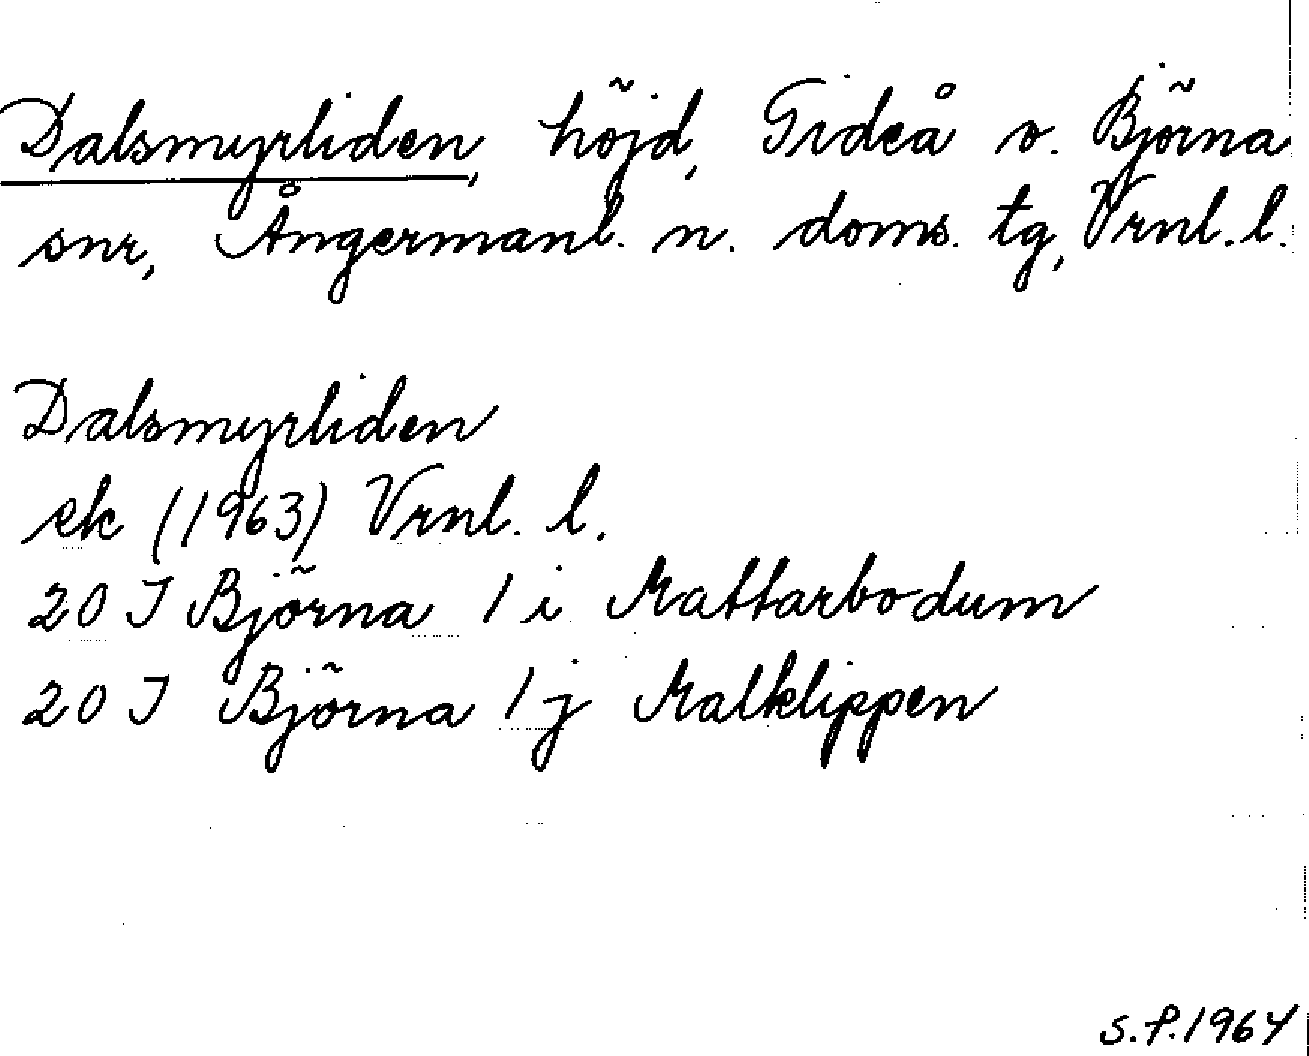 Dalsmyrliden, höjd, Gideå o. Björna
snr, Ångermanl. n. doms. tg, Vrnl. l.
Dalsmyrliden
ek (1963) Vrnl. l.
20 I Björna 1 i Mattarbodum
20 I Björna 1 j Malklippen
S.P. 1964